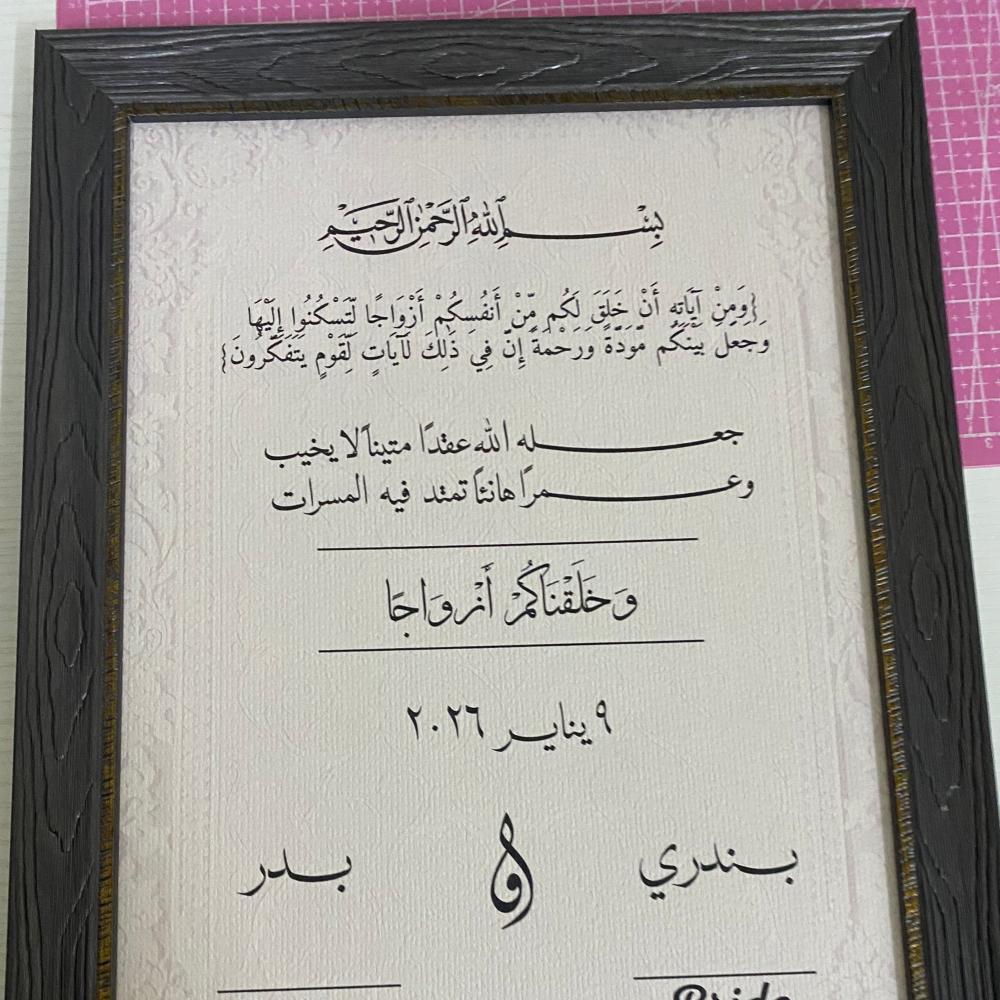 بِسْمِ ٱللَّهِ ٱلرَّحْمَٰنِ ٱلرَّحِيمِ
{وَمِنْ آيَاتِهِ أَنْ خَلَقَ لَكُم مِّنْ أَنفُسِكُمْ أَزْوَاجًا لِّتَسْكُنُوا إِلَيْهَا
وَجَعَلَ بَيْنَكُم مَّوَدَّةً وَرَحْمَةً إِنَّ فِي ذَٰلِكَ لَآيَاتٍ لِّقَوْمٍ يَتَفَكَّرُونَ}
جعله الله عقدًا متينًا لا يخيب
وعمرًا هانئًا تمتد فيه المسرات
وَخَلَقْنَاكُمْ أَزْوَاجًا
٩ يناير ٢٠٢٦
بندري و بدر
Bride